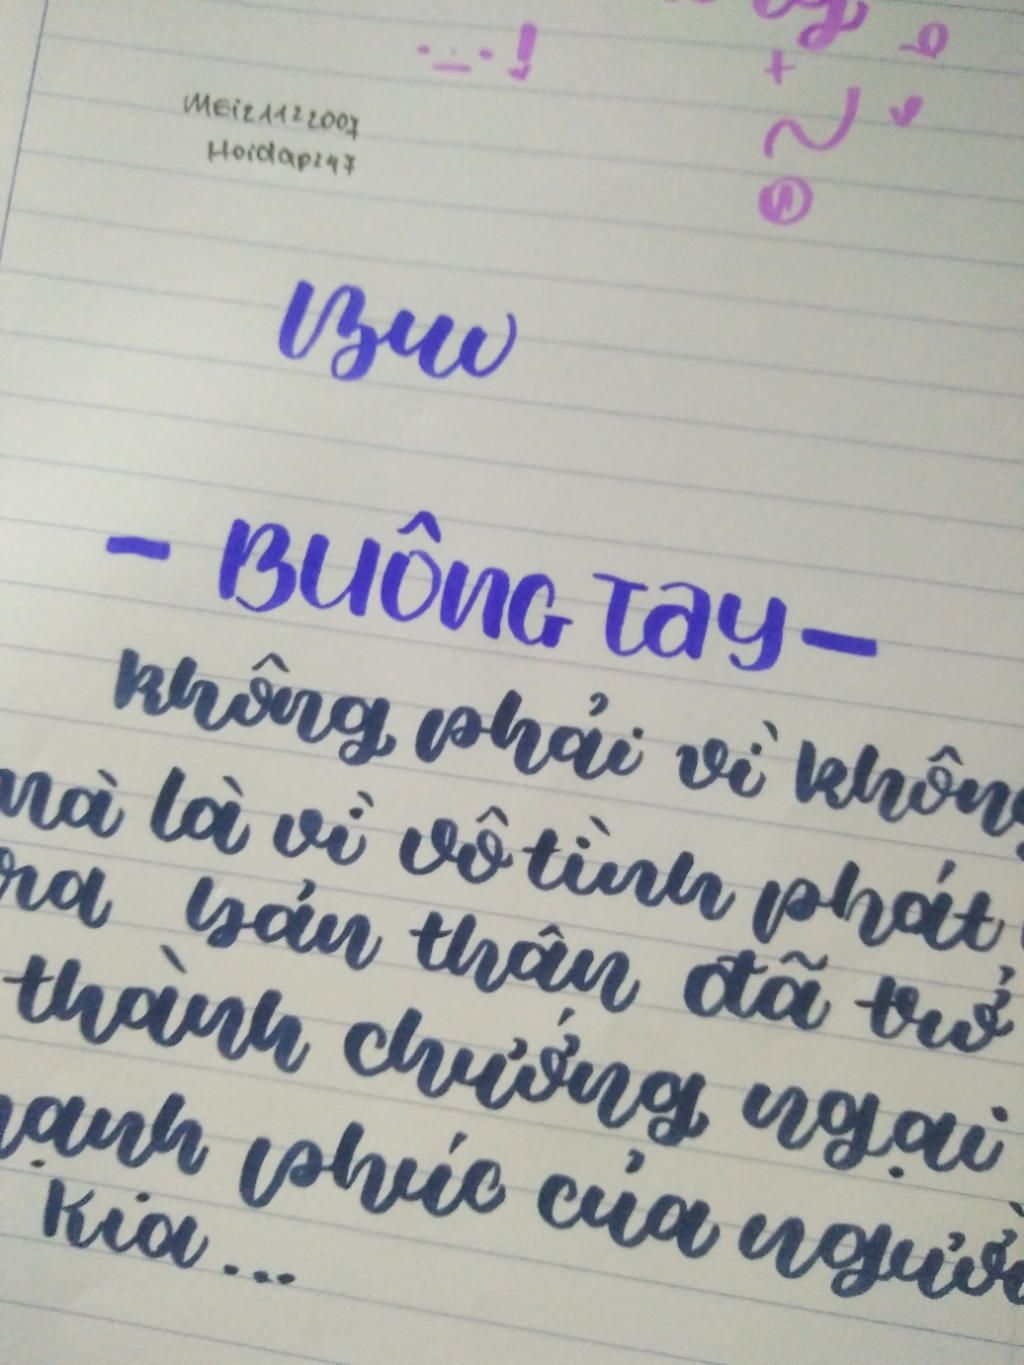 ._.!
+
MEi21122007
Hoidap247
Buv
- BUÔNG Tay -
không phải vì không
mà là vì vô tình phát
ra bản thân đã trở
thành chướng ngại
hạnh phúc của người
kia...